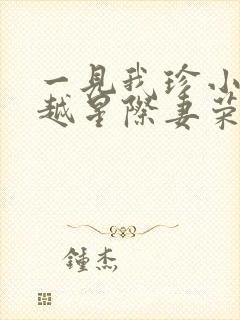 一見我珍小
越星際妻榮
鍾杰